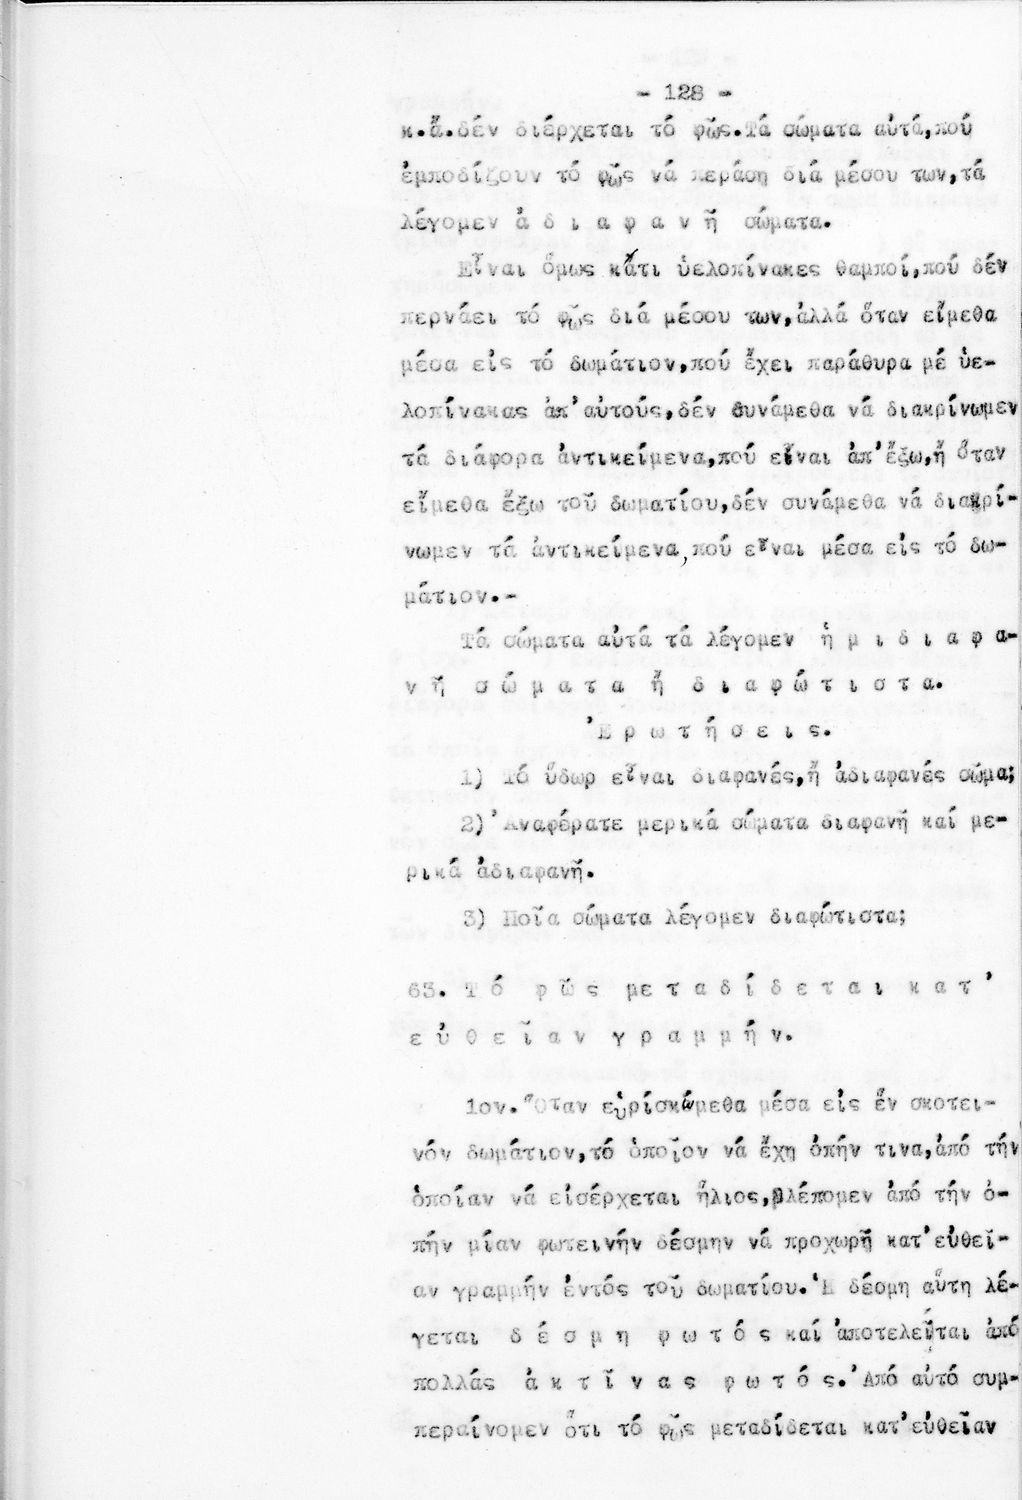 - 128 -
κ.ἄ.δέν διέρχεται τό φῶς.Τά σώματα αὐτά,πού
ἐμποδίζουν τό φῶς νά περάσῃ διά μέσου των,τά
λέγομεν ἀ δ ι α φ α ν ῆ σώματα.
Εἶναι ὅμως κάτι ὑελοπίνακες θαμποί,πού δέν
περνάει τό φῶς διά μέσου των,ἀλλά ὅταν εἴμεθα
μέσα είς τό δωμάτιον,πού ἔχει παράθυρα μέ ὑε-
λοπίνακας ἀπ'αὐτούς,δέν συνάμεθα νά διακρίνωμεν
τά διάφορα ἀντικείμενα,πού εἶναι ἀπ'ἔξω,ἤ ὅταν
εἴμεθα ἔξω τοῦ δωματίου,δέν συνάμεθα νά διακρί-
νωμεν τά ἀντικείμενα,πού εἶναι μέσα εἰς τό δω-
μάτιον.-
Τά σώματα αὐτά τά λέγομεν ἡ μ ι δ ι α φ α-
ν ῆ σ ώ μ α τ α ἤ δ ι α φ ώ τ ι σ τ α.
Ἐ ρ ω τ ή σ ε ι ς.
1) Τό ὕδωρ εἶναι διαφανές,ἤ ἀδιαφανές σῶμα;
2) Ἀναφέρατε μερικά σώματα διαφανῆ καί με-
ρικά ἀδιαφανῆ.
3) Ποῖα σώματα λέγομεν διαφώτιστα;
63. Τ ό φ ῶ ς μ ε τ α δ ί δ ε τ α ι κ α τ '
ε ὐ θ ε ῖ α ν γ ρ α μ μ ή ν.
1ον. Ὅταν εὑρίσκώμεθα μέσα εἰς ἕν σκοτει-
νόν δωμάτιον,τό ὁποῖον νά ἔχῃ ὀπήν τινα,ἀπό τήν
ὁποίαν νά εἰσέρχεται ἥλιος,βλέπομεν ἀπό τήν ὀ-
πήν μίαν φωτεινήν δέσμην νά προχωρῇ κατ'εὐθεῖ-
αν γραμμήν ἐντός τοῦ δωματίου.Ἡ δέσμη αὕτη λέ-
γεται δ έ σ μ η φ ω τ ό ς καί ἀποτελεῖται ἀπό
πολλάς ἀ κ τ ῖ ν α ς φ ω τ ό ς.Ἀπό αὐτό συμ-
περαίνομεν ὅτι τό φῶς μεταδίδεται κατ'εὐθεῖαν